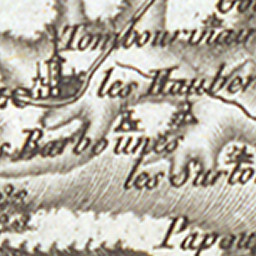 Tombourinair
les Hauber
s Barbounes
les Surto
Papou